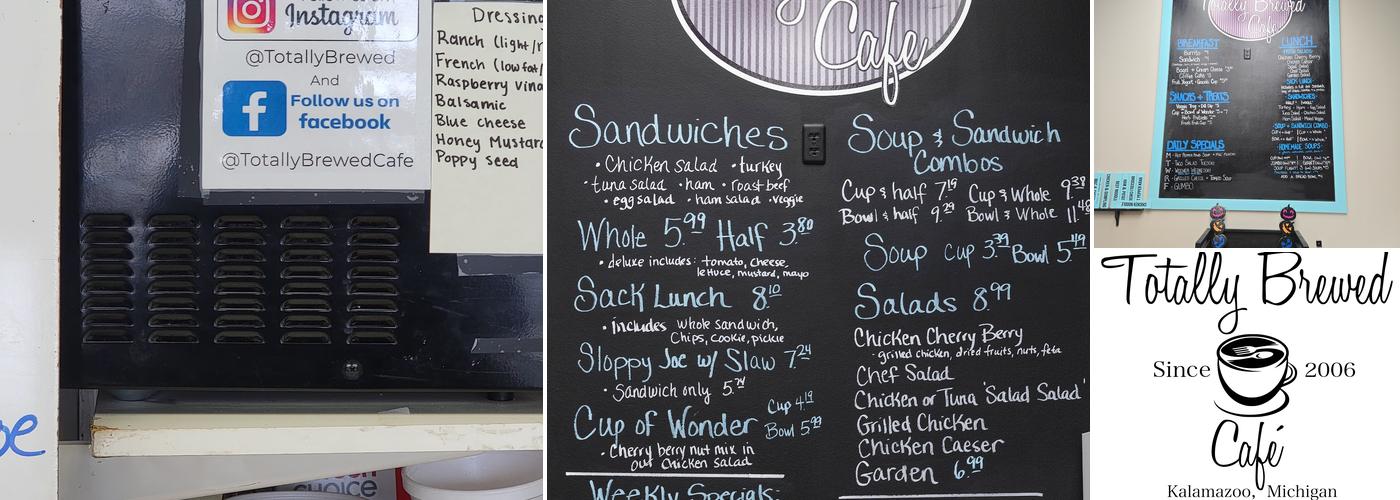 Instagram
@TotallyBrewed
And
Follow us on
facebook
@TotallyBrewedCafe
Dressing
Ranch (light/r
French (low fat/
Raspberry Vina
Balsamic
Blue cheese
Honey Mustard
Poppy seed
Cafe
Sandwiches
• Chicken salad • turkey
• tuna salad • ham • roast beef
• egg salad • ham salad • veggie
Whole 5.99 Half 3.80
• deluxe includes: tomato, cheese,
lettuce, mustard, mayo
Sack Lunch 8.10
• includes whole sandwich,
Chips, cookie, pickle
Sloppy Joe w/ Slaw 7.24
• Sandwich only
Cup of Wonder Cup 4.19
Bowl 5.99
• Cherry berry nut mix in
our Chicken Salad
Weekly Specials:
Soup & Sandwich
Combos
Cup & half 7.19 Cup & Whole 9.38
Bowl & half 9.29 Bowl & Whole 11.48
Soup Cup 3.39 Bowl 5.49
Salads 8.99
Chicken Cherry Berry
- grilled chicken, dried fruits, nuts, feta
Chef Salad
Chicken or Tuna 'Salad Salad'
Grilled Chicken
Chicken Caeser
Garden 6.99
Totally Brewed
Cafe
BREAKFAST
Burrito
Sandwich
Bagel + Cream Cheese
SNACKS + TREATS
DAILY SPECIALS
M
T - TACO SALAD TUESDAY
W
R - GRILLED CHEESE + TOMATO SOUP
F - GUMBO
LUNCH
Chicken Cherry Berry
Chicken Caesar
Chef Salad
Garden Salad
SACK LUNCH
SANDWICHES
SOUP + SANDWICH COMBO
HOMEMADE SOUPS
Totally Brewed
Since 2006
Café
Kalamazoo, Michigan